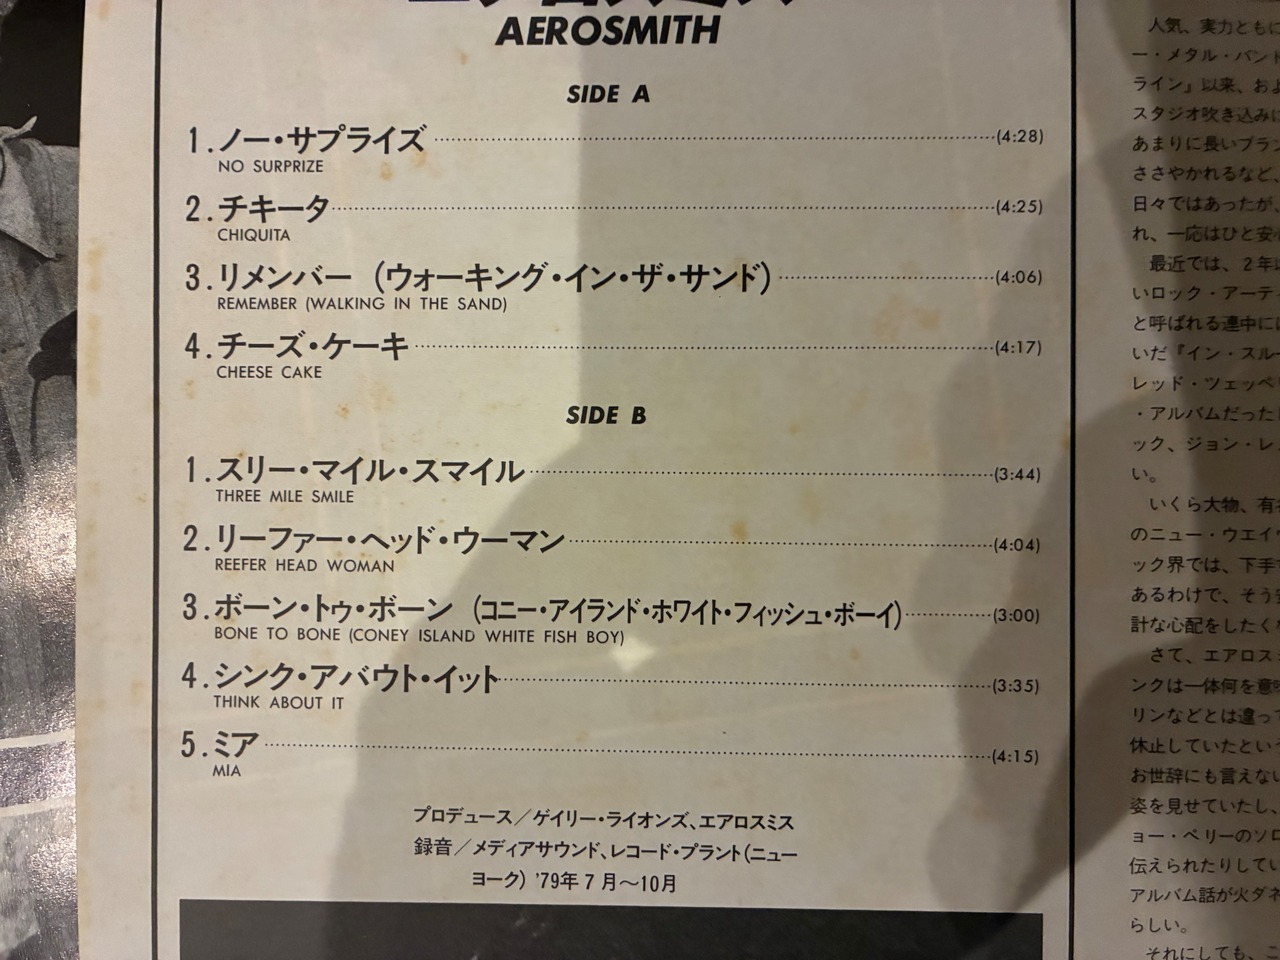 AEROSMITH
SIDE A
1.ノー・サプライズ (4:28)
NO SURPRIZE
2.チキータ (4:25)
CHIQUITA
3.リメンバー (ウォーキング・イン・ザ・サンド) (4:06)
REMEMBER (WALKING IN THE SAND)
4.チーズ・ケーキ (4:17)
CHEESE CAKE
SIDE B
1.スリー・マイル・スマイル (3:44)
THREE MILE SMILE
2.リーファー・ヘッド・ウーマン (4:04)
REEFER HEAD WOMAN
3.ボーン・トゥ・ボーン (コニー・アイランド・ホワイト・フィッシュ・ボーイ) (3:00)
BONE TO BONE (CONEY ISLAND WHITE FISH BOY)
4.シンク・アバウト・イット (3:35)
THINK ABOUT IT
5.ミア (4:15)
MIA
プロデュース/ゲイリー・ライオンズ、エアロスミス
録音/メディアサウンド、レコード・プラント(ニュー
ヨーク) '79年7月〜10月
人気、実力ともに
ー・メタル・バンド
ライン』以来、およ
スタジオ吹き込みに
あまりに長いブラン
ささやかれるなど、
日々ではあったが、
れ、一応はひと安心
最近では、2年以
いロック・アーテ
と呼ばれる連中に
いだ『イン・スルー
レッド・ツェッペ
・アルバムだった
ック、ジョン・レ
い。
いくら大物、有名
のニュー・ウエイヴ
ック界では、下手
あるわけで、そう
計な心配をしたくな
さて、エアロスミ
ンクは一体何を意味
リンなどとは違っ
休止していたという
お世辞にも言えない
姿を見せていたし、
ョー・ペリーのソロ
伝えられたりしてい
アルバム話が火ダネ
らしい。
それにしても、こ